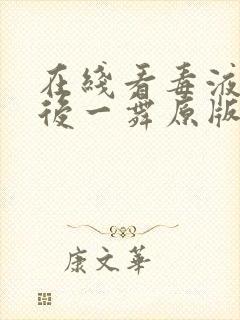 在綫看毒液
後一舞原版
康文華